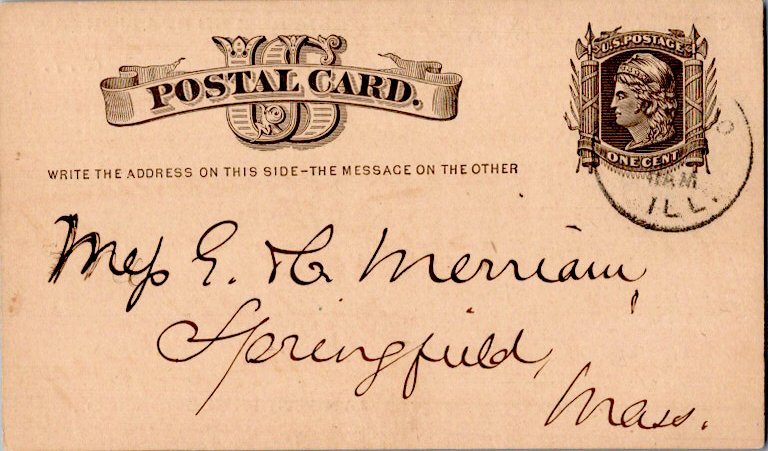 US
POSTAL CARD.
U.S. POSTAGE
ONE CENT
WRITE THE ADDRESS ON THIS SIDE-THE MESSAGE ON THE OTHER
AM
ILL.
Mess G. & C. Merriam,
Springfield,
Mass.